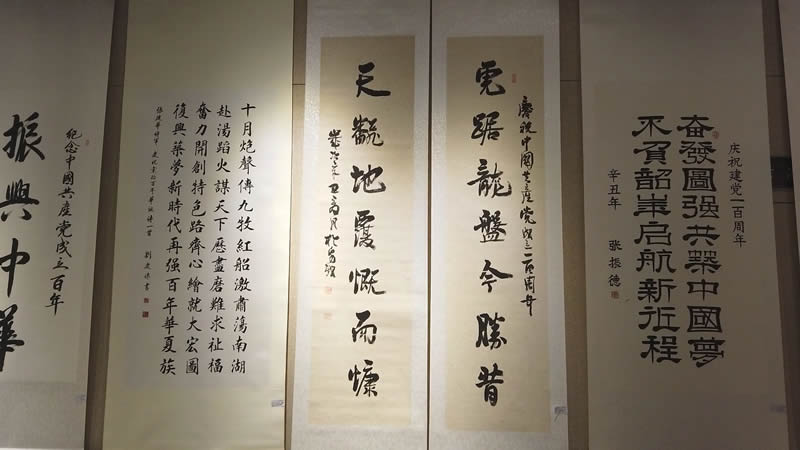 庆祝建党一百周年
奋發圖强共築中國夢
不負韶華启航新征程
辛丑年 张振德
慶祝中國共產党成立一百周年
虎踞龍盤今勝昔
天翻地覆慨而慷
歲次辛丑
十月炮聲傳九牧紅船激肅蕩南湖
赴湯蹈火謀天下歷盡磨難求祉福
奮力開創特色路齊心繪就大宏圖
復興築夢新時代再强百年華夏族
紀念中國共產党成立百年
振興中華